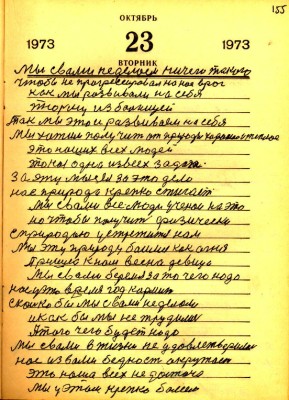 155
ОКТЯБРЬ
1973 23 1973
ВТОРНИК
Мы с вами не делаем ничего такого
чтобы не прогрессировал на нас враг
как мы развивали на себя
так мы это развиваем на себя
Мы хотим получит от природы хорошее и теплое
это наших всех людей
одна из всех задач.
За эту мысль за это дело
нас природа крепко стигает
Мы с вами все люди учены на это
но чтобы получит физически
с природою устретится нам
Мы эту природу боимся как огня
Пришла к нам весна девица
Мы с вами беремся за то чего надо
нас это время год кармит
сколко бы мы с вами не делали
и как бы мы не трудились
А того чего будет надо
Мы с вами в жизни не удовлетворили
нас из вами бедност окружает
это наша всех не
мы у этом крепко болеем